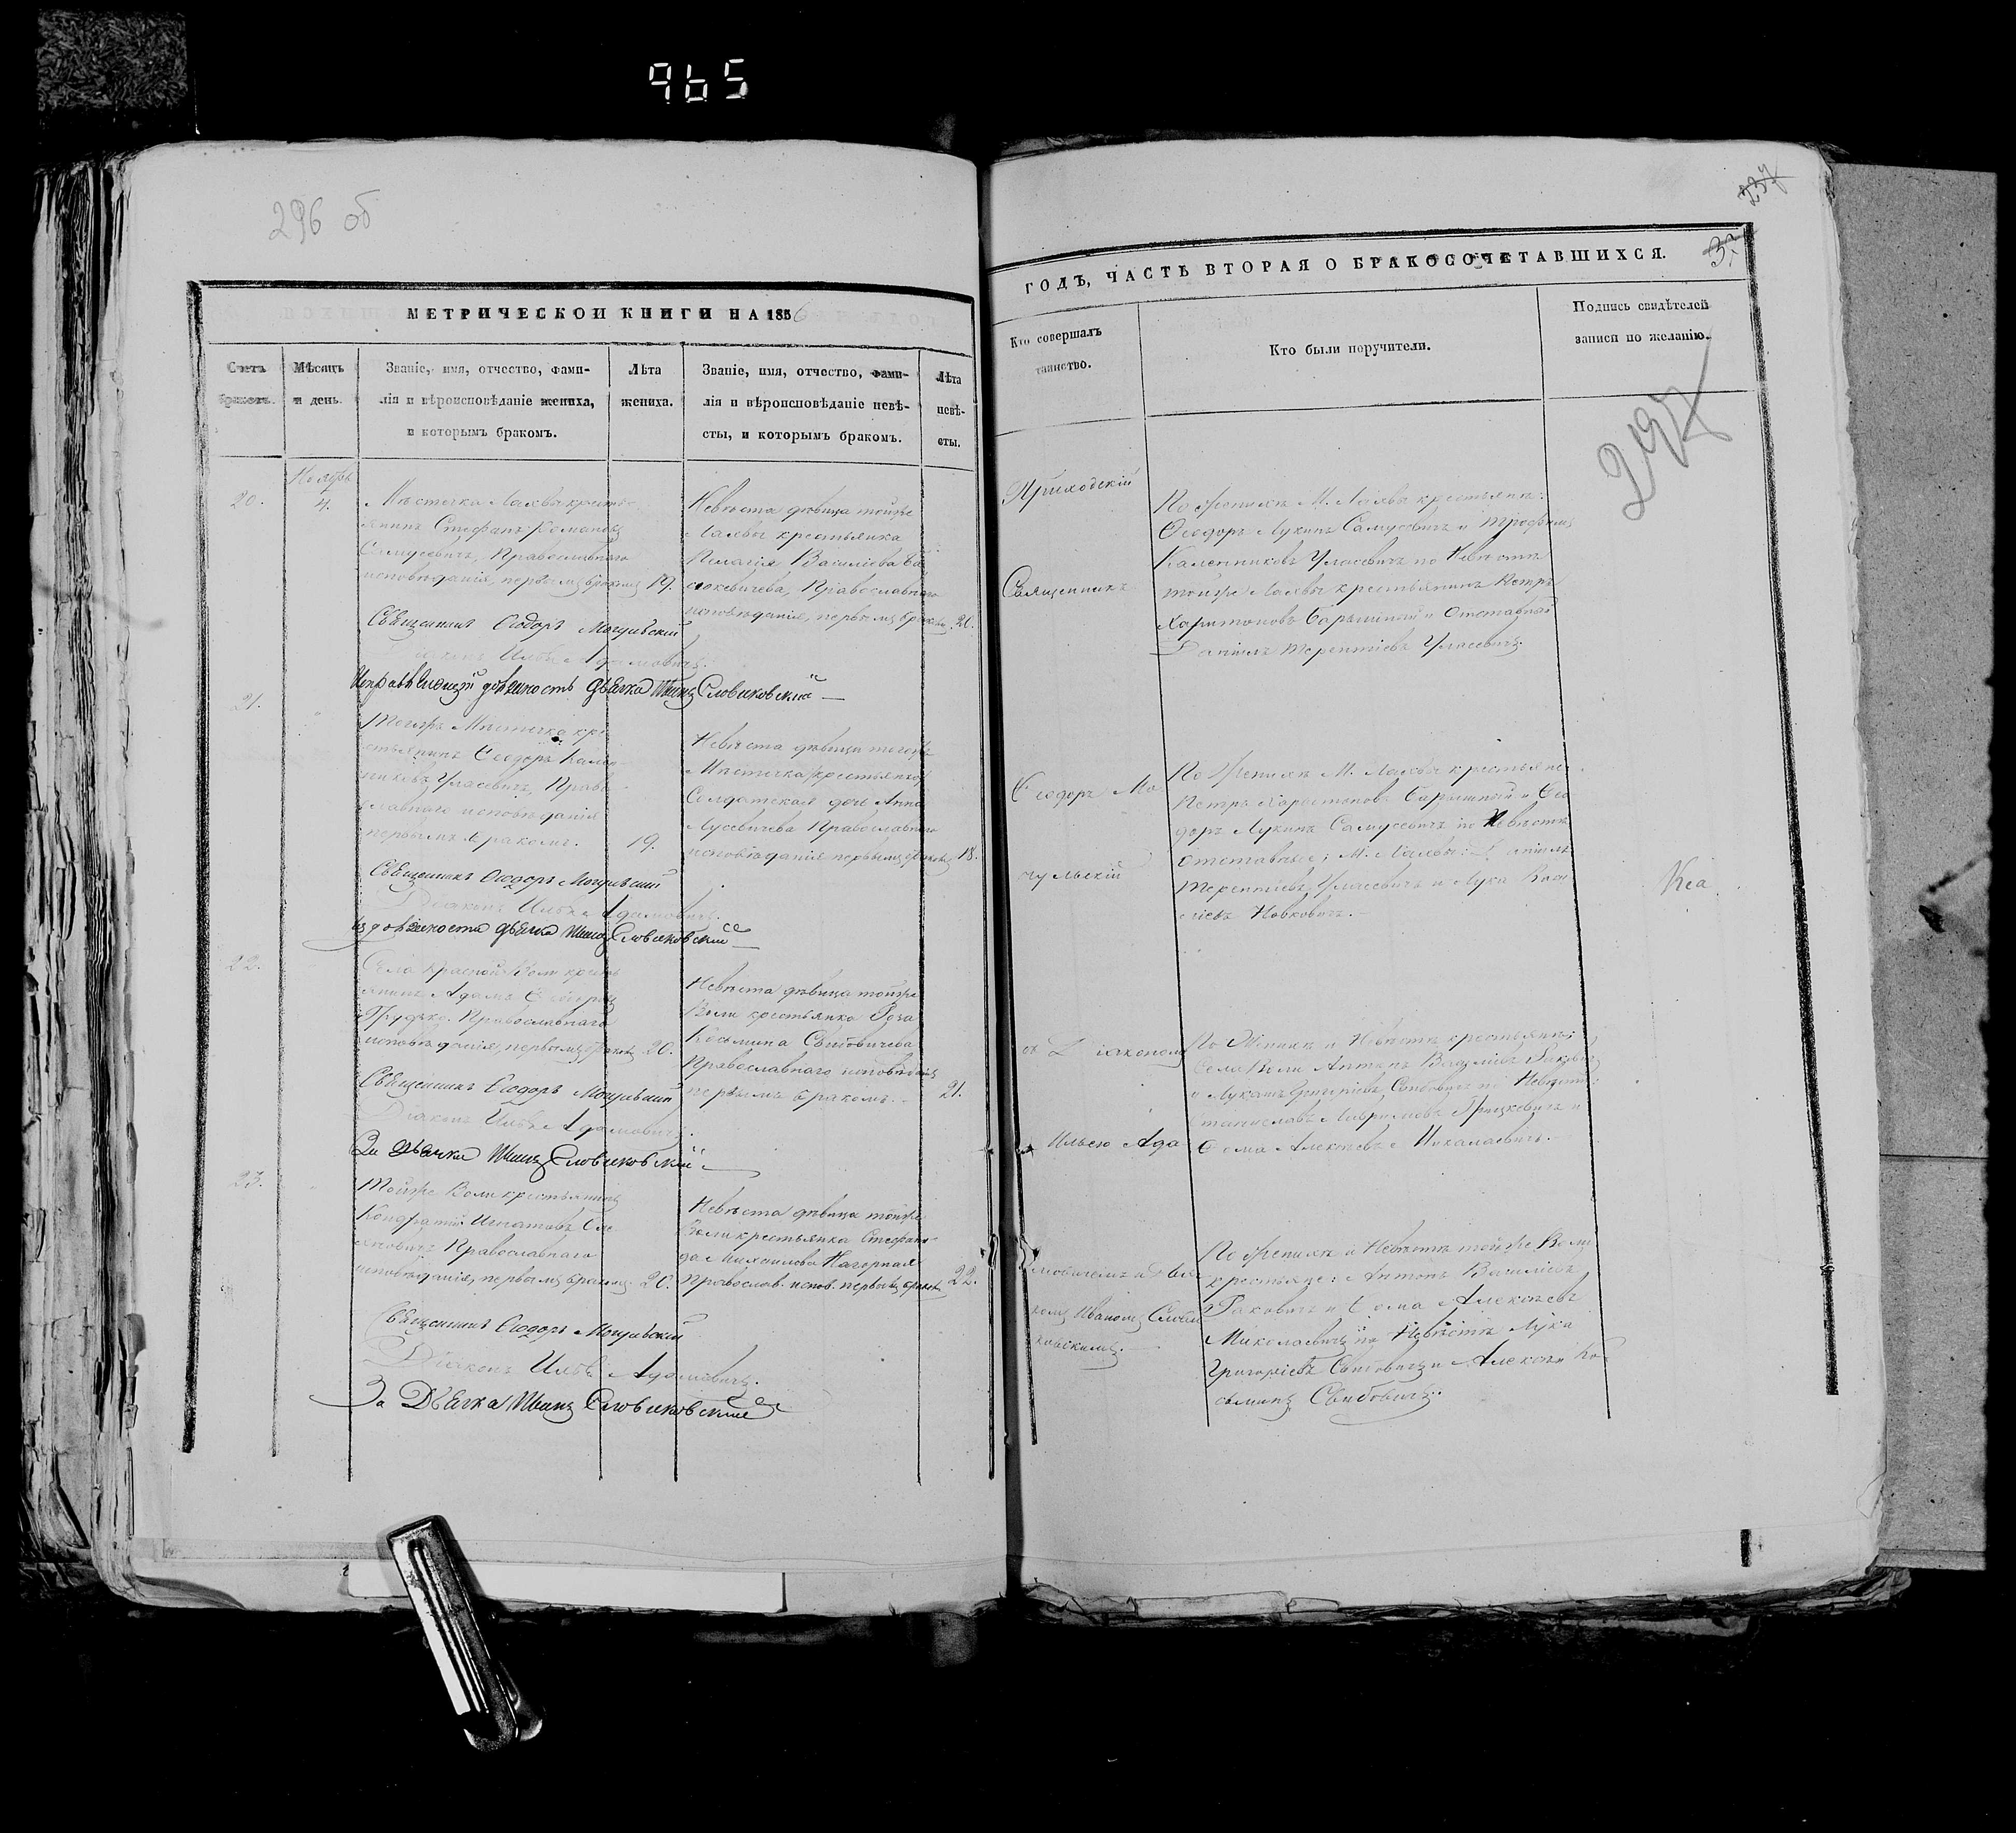 965
296 об
МЕТРИЧЕСКОЙ КНИГИ НА 1856
Счетъ браковъ.
Мѣсяцъ и день.
Званіе, имя, отчество, фами-
лія и вѣроисповѣданіе жениха,
и которымъ бракомъ.
Лѣта
жениха.
Званіе, имя, отчество, фами-
лія и вѣроисповѣданіе невѣ-
сты, и которымъ бракомъ.
Лѣта
невѣ-
сты.
20.
Ноябрь
4.
Мѣстечка Лахвы кресть-
янинъ Стефанъ Романовъ
Самусевичъ, Православнаго
исповѣданія, первымъ бракомъ
19.
Невѣста дѣвица тойже
Лахвы крестьянка
Пелагія Василіева
Православнаго
исповѣданія, первымъ бракомъ
20.
Священникъ Ѳеодоръ
Діаконъ Илья Адамовичъ.
Исправляющій должность дьячка Иванъ Словиковскій
21.
Тогоже Мѣстечка кре-
стьянинъ Ѳеодоръ Кале-
никовъ Уласевичъ, Право-
славнаго исповѣданія
первымъ бракомъ.
19.
Невѣста дѣвица тогоже
Мѣстечка крестьянка
Солдатская дочь Анна
Лусевичева Православнаго
исповѣданія первымъ бракомъ
18.
Священникъ Ѳеодоръ
Діаконъ Илья Адамовичъ.
должности дьячка Иванъ Словиковскій
22.
Села Красной Воли кресть-
янинъ Адамъ
Грудько. Православнаго
исповѣданія, первымъ бракомъ
20.
Невѣста дѣвица тойже
Воли крестьянка
Косьмина Свибовичева
Православнаго исповѣданія
первымъ бракомъ.
21.
Священникъ Ѳеодоръ
Діаконъ Илья Адамовичъ.
За дьячка Иванъ Словиковскій
23.
Тойже Воли крестьянинъ
Кондратій Игнатовъ
Православнаго
исповѣданія, первымъ бракомъ.
20.
Невѣста дѣвица тойже
Воли крестьянка Стефани-
да Михаилова Нагорная
Православ. испов. первымъ бракомъ
22.
Священникъ Ѳеодоръ
Діаконъ Илья Адамовичъ.
За Дьячка Иванъ Словиковскій
237
ГОДЪ, ЧАСТЬ ВТОРАЯ О БРАКОСОЧЕТАВШИХСЯ.
Кто совершалъ
таинство.
Кто были поручители.
Подпись свидѣтелей
записи по желанію.
297
Приходскій
Священникъ
Ѳеодоръ Мо-
чульскій
съ Діакономъ
Ильею Ада-
мовичемъ и дьяч-
комъ Иваномъ Слови-
ковскимъ.
По Женихѣ М. Лахвы крестьяне:
Ѳеодоръ Лукинъ Самусевичъ и Трофимъ
Каленниковъ Уласевичъ по Невѣстѣ
тойже Лахвы крестьянинъ Петръ
Харитоновъ и Отставной
Даніилъ Терентіевъ Уласевичъ.
По Женихѣ М. Лахвы крестьяне
Петръ Харитоновъ и Ѳео-
доръ Лукинъ Самусевичъ по Невѣстѣ
Отставные: М. Лахвы: Даніилъ
Терентіевъ Уласевичъ и Лука Васи-
ліевъ Новковичъ.
По Женихѣ и Невѣстѣ крестьяне:
Села Воли Антонъ Василіевъ Раковичъ
и Лука Григоріевъ Свибовичъ по Невѣстѣ:
Станиславъ и
Ѳома Алексѣевъ Николаевичъ.
По Женихѣ и Невѣстѣ тойже Воли
крестьяне: Антонъ Василіевъ
Раковичъ и Ѳома Алексѣевъ
Миколаевичъ по Невѣстѣ Лука
Григоріевъ Свибовичъ и Алексѣй Ко-
сьминъ Свибовичъ.